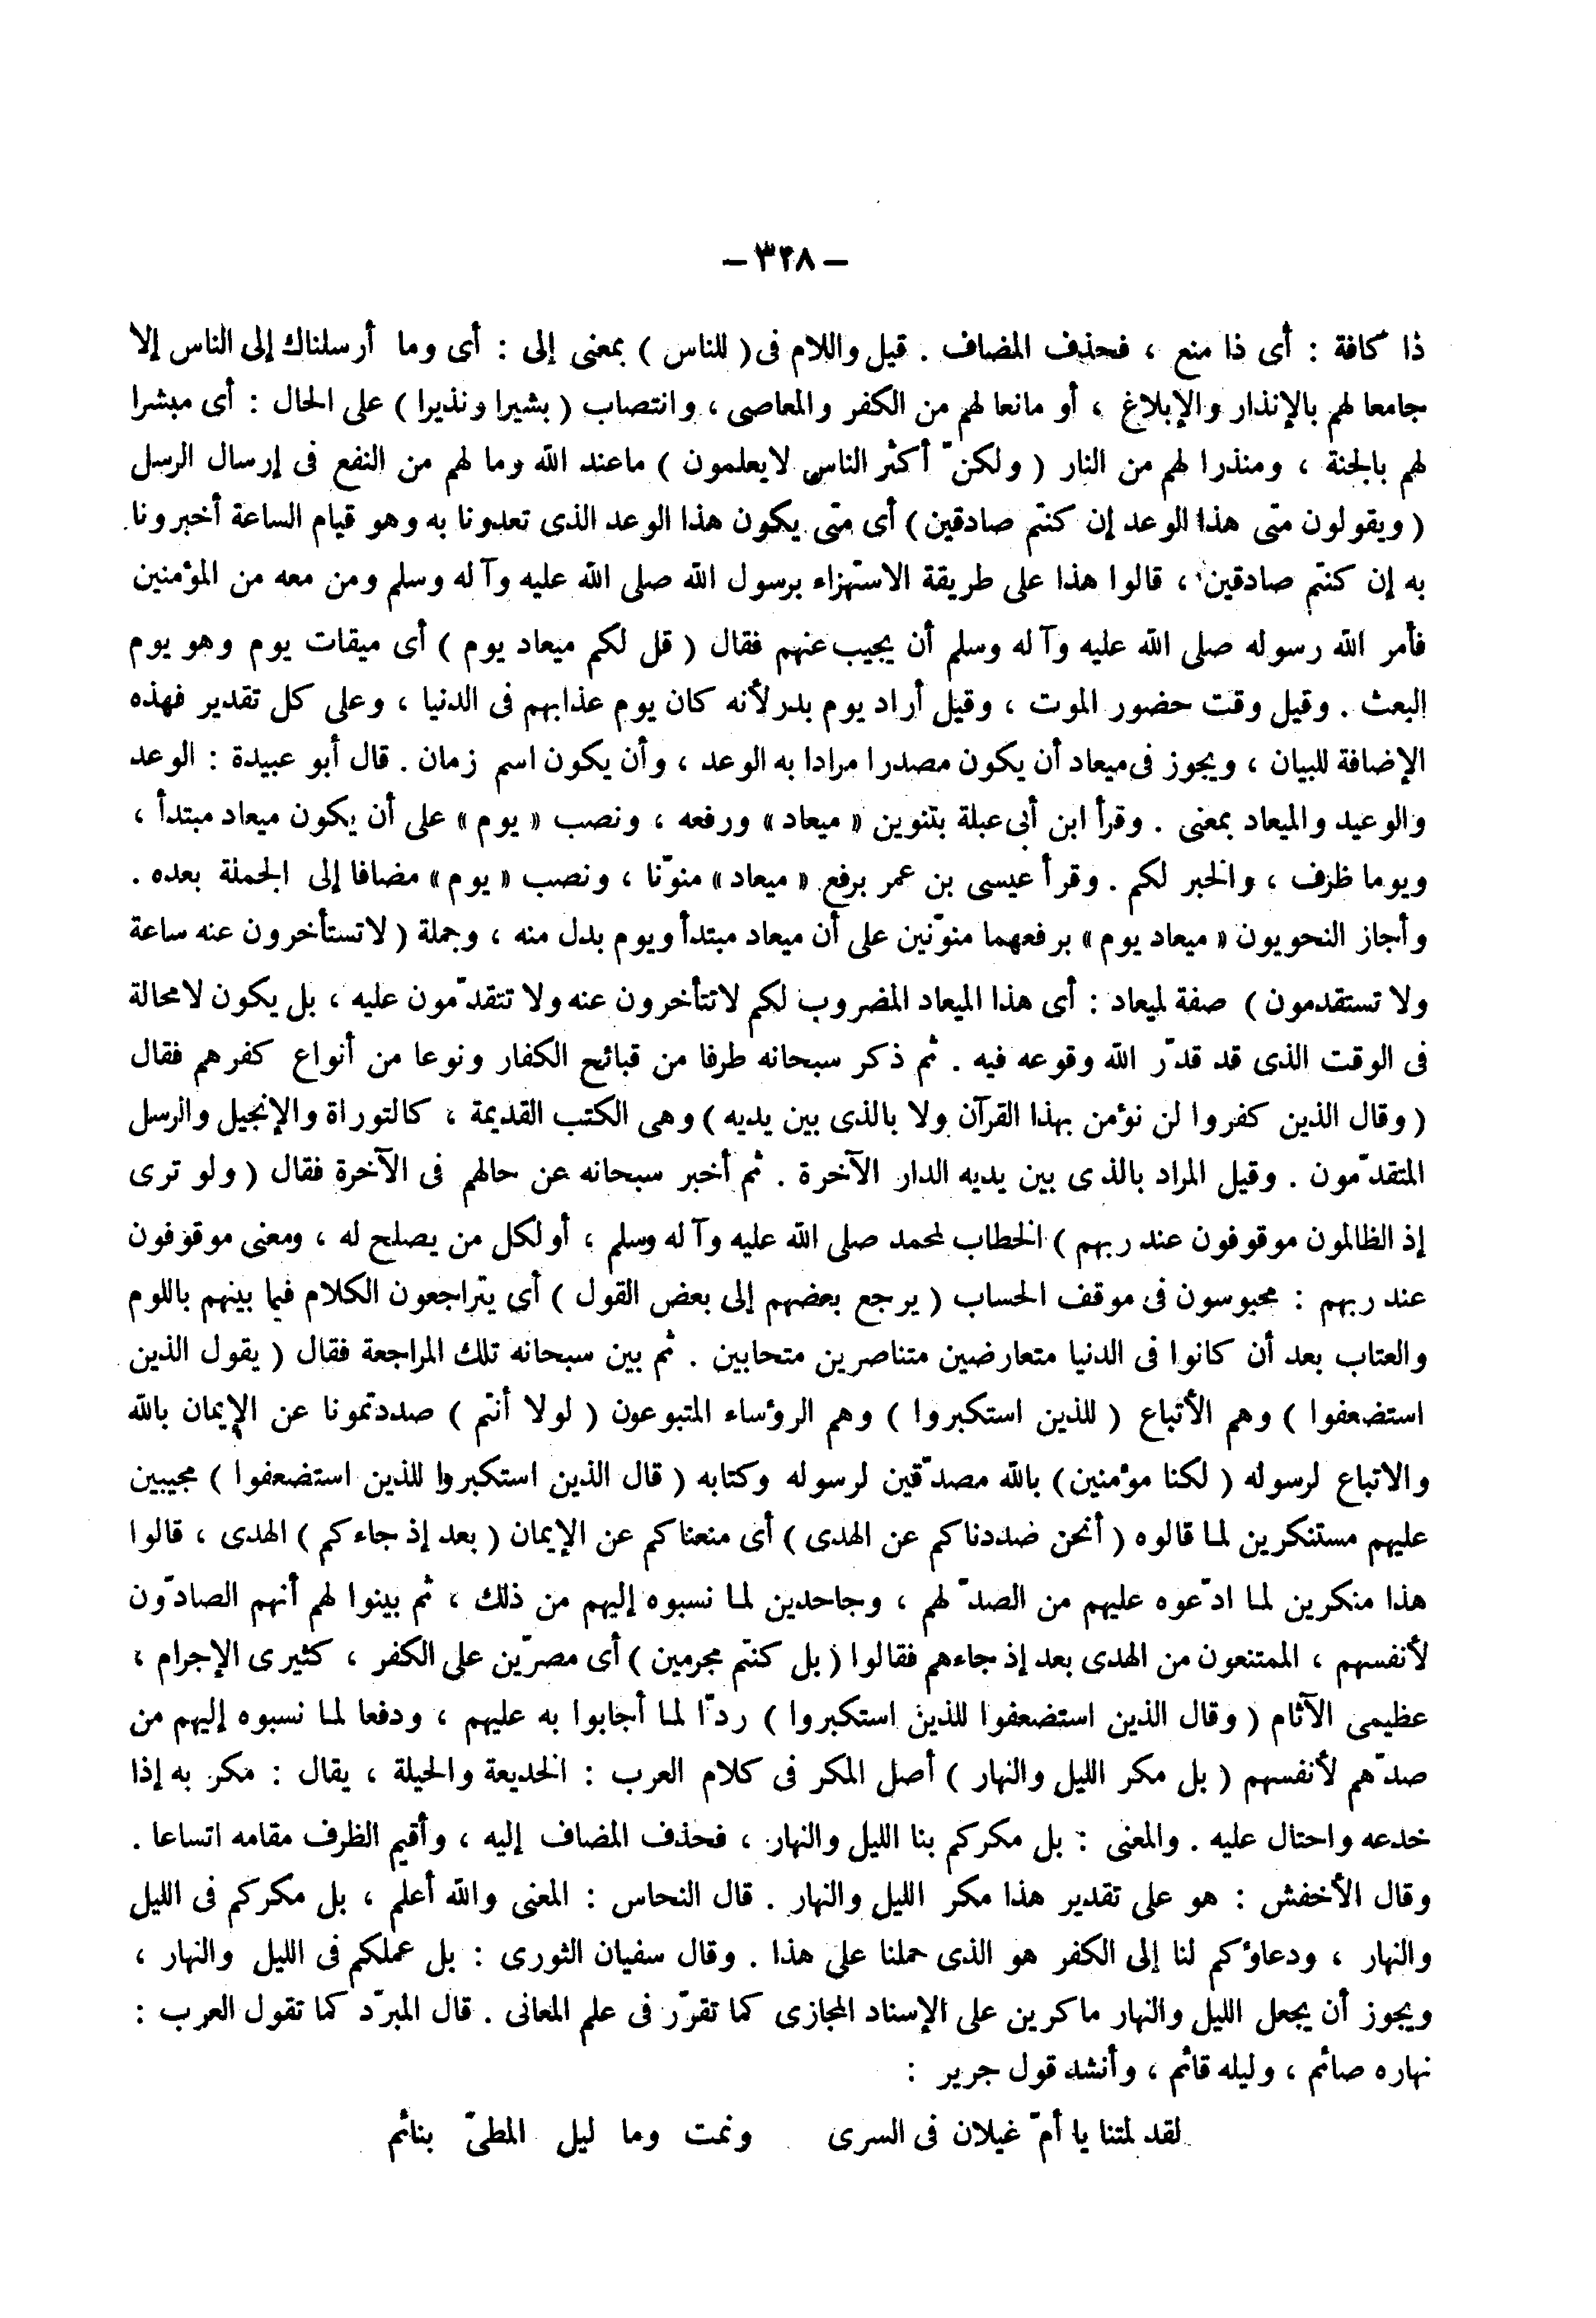 – ٣٢٨ –
ذا كافة : أى ذا منع ، فحذف المضاف . قيل واللام فى ( للناس ) بمعنى إلى : أى وما أرسلناك إلى الناس إلا
جامعا لهم بالإنذار والإبلاغ ، أو مانعا لهم من الكفر والمعاصى ، وانتصاب ( بشيرا ونذيرا ) على الحال : أى مبشرا
لهم بالجنة ، ومنذرا لهم من النار ( ولكنّ أكثر الناس لايعلمون ) ماعند الله وما لهم من النفع فى إرسال الرسل
( ويقولون متى هذا الوعد إن كنتم صادقين ) أى متى يكون هذا الوعد الذى تعدونا به وهو قيام الساعة أخبرونا
به إن كنتم صادقين ، قالوا هذا على طريقة الاستهزاء برسول الله صلى الله عليه وآله وسلم ومن معه من المؤمنين
فأمر الله رسوله صلى الله عليه وآله وسلم أن يجيب عنهم فقال ( قل لكم ميعاد يوم ) أى ميقات يوم وهو يوم
البعث . وقيل وقت حضور الموت ، وقيل أراد يوم بدر لأنه كان يوم عذابهم فى الدنيا ، وعلى كل تقدير فهذه
الإضافة للبيان ، ويجوز فى ميعاد أن يكون مصدرا مرادا به الوعد ، وأن يكون اسم زمان . قال أبو عبيدة : الوعد
والوعيد والميعاد بمعنى . وقرأ ابن أبى عبلة بتنوين « ميعاد » ورفعه ، ونصب « يوم » على أن يكون ميعاد مبتدأ ،
ويوما ظرف ، والخبر لكم . وقرأ عيسى بن عمر برفع « ميعاد » منوّنا ، ونصب « يوم » مضافا إلى الجملة بعده .
وأجاز النحويون « ميعاد يوم » برفعهما منوّنين على أن ميعاد مبتدأ ويوم بدل منه ، وجملة ( لاتستأخرون عنه ساعة
ولا تستقدمون ) صفة لميعاد : أى هذا الميعاد المضروب لكم لاتتأخرون عنه ولا تتقدّمون عليه ، بل يكون لامحالة
فى الوقت الذى قد قدّر الله وقوعه فيه . ثم ذكر سبحانه طرفا من قبائح الكفار ونوعا من أنواع كفرهم فقال
( وقال الذين كفروا لن نؤمن بهذا القرآن ولا بالذى بين يديه ) وهى الكتب القديمة ، كالتوراة والإنجيل والرسل
المتقدّمون . وقيل المراد بالذى بين يديه الدار الآخرة . ثم أخبر سبحانه عن حالهم فى الآخرة فقال ( ولو ترى
إذ الظالمون موقوفون عند ربهم ) الخطاب لمحمد صلى الله عليه وآله وسلم ، أو لكل من يصلح له ، ومعنى موقوفون
عند ربهم : محبوسون فى موقف الحساب ( يرجع بعضهم إلى بعض القول ) أى يتراجعون الكلام فيما بينهم باللوم
والعتاب بعد أن كانوا فى الدنيا متعارضين متناصرين متحابين . ثم بين سبحانه تلك المراجعة فقال ( يقول الذين
استضعفوا ) وهم الأتباع ( للذين استكبروا ) وهم الرؤساء المتبوعون ( لولا أنتم ) صددتمونا عن الإيمان بالله
والاتباع لرسوله ( لكنا مؤمنين ) بالله مصدّقين لرسوله وكتابه ( قال الذين استكبروا للذين استضعفوا ) مجيبين
عليهم مستنكرين لما قالوه ( أنحن صددناكم عن الهدى ) أى منعناكم عن الإيمان ( بعد إذ جاءكم ) الهدى ، قالوا
هذا منكرين لما ادّعوه عليهم من الصدّ لهم ، وجاحدين لما نسبوه إليهم من ذلك ، ثم بينوا لهم أنهم الصادّون
لأنفسهم ، الممتنعون من الهدى بعد إذ جاءهم فقالوا ( بل كنتم مجرمين ) أى مصرّين على الكفر ، كثيرى الإجرام ،
عظيمى الآثام ( وقال الذين استضعفوا للذين استكبروا ) ردّا لما أجابوا به عليهم ، ودفعا لما نسبوه إليهم من
صدّهم لأنفسهم ( بل مكر الليل والنهار ) أصل المكر فى كلام العرب : الخديعة والحيلة ، يقال : مكر به إذا
خدعه واحتال عليه . والمعنى : بل مكركم بنا الليل والنهار ، فحذف المضاف إليه ، وأقيم الظرف مقامه اتساعا .
وقال الأخفش : هو على تقدير هذا مكر الليل والنهار . قال النحاس : المعنى والله أعلم ، بل مكركم فى الليل
والنهار ، ودعاؤكم لنا إلى الكفر هو الذى حملنا على هذا . وقال سفيان الثورى : بل عملكم فى الليل والنهار ،
ويجوز أن يجعل الليل والنهار ماكرين على الإسناد المجازى كما تقرّر فى علم المعانى . قال المبرّد كما تقول العرب :
نهاره صائم ، وليله قائم ، وأنشد قول جرير :
لقد لمتنا يا أمّ غيلان فى السرى ونمت وما ليل المطىّ بنائم